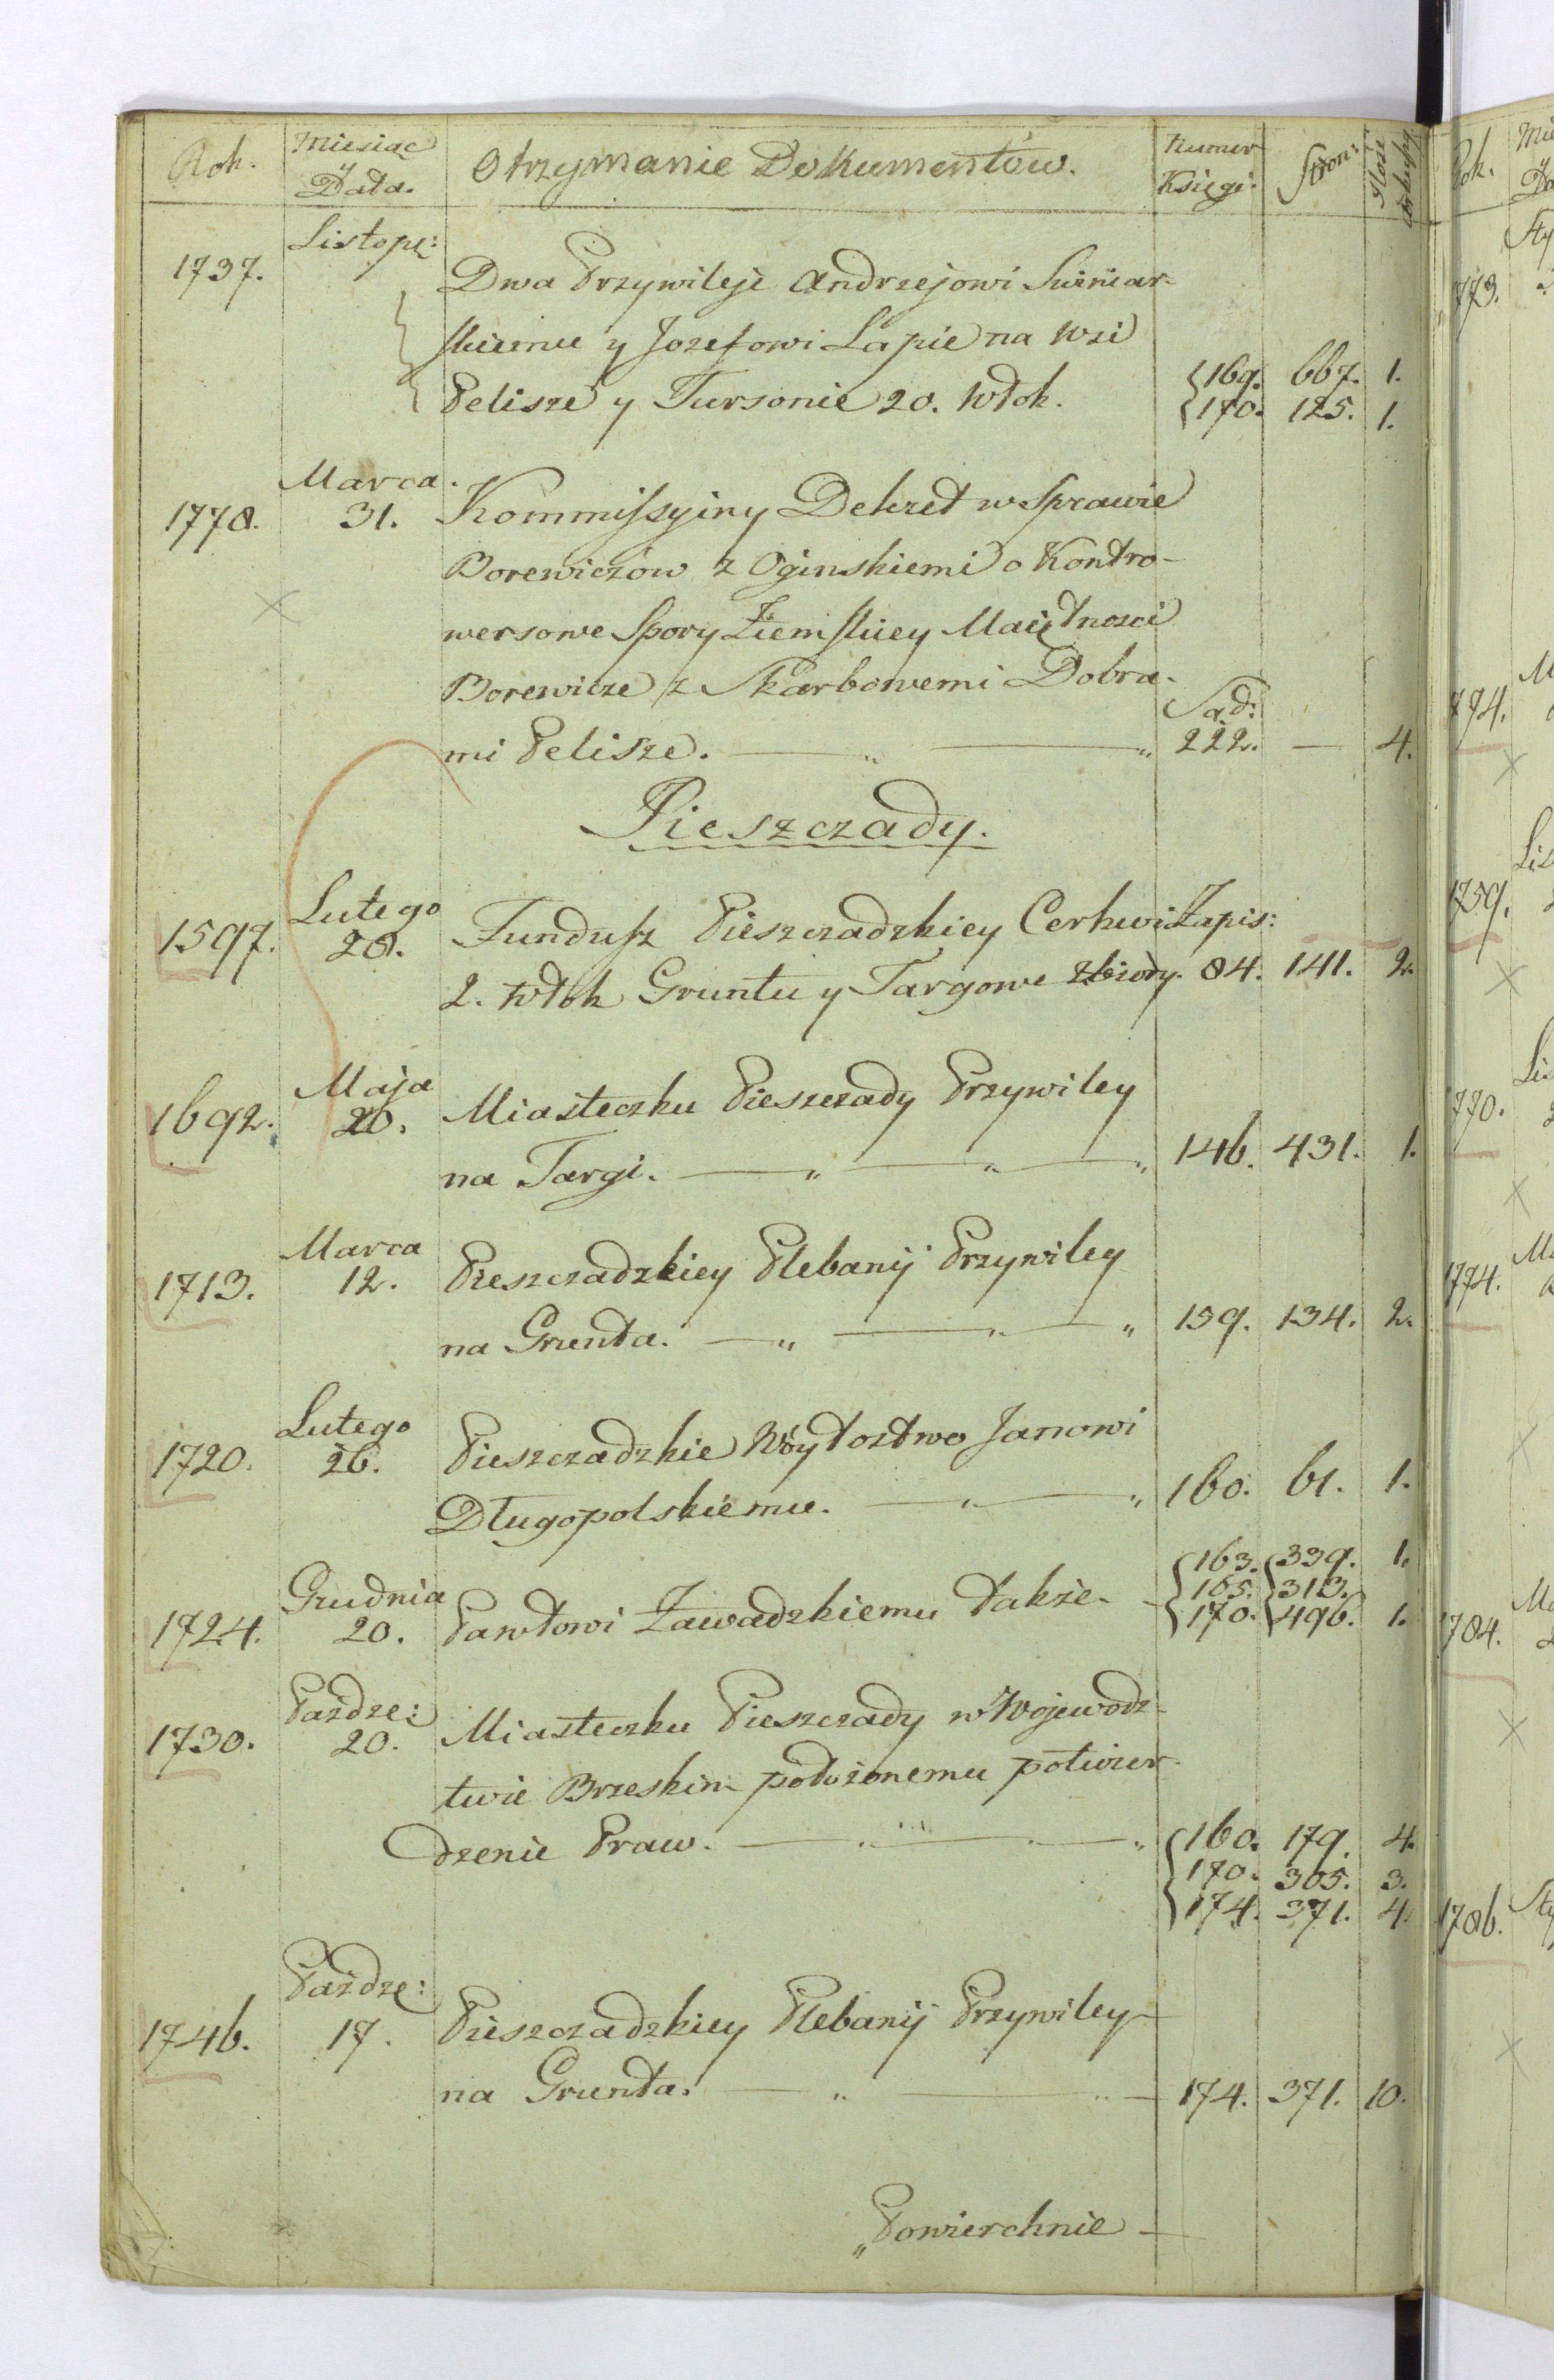 Rok. Miesiąc y Data. Otrzymanie Dokumentów. Numer Księgi: Stron: Ilość Arkuszy
Listop:
1737. Dwa Przywileje Andrzejowi Suźniar-
skiemu y Jozefowi Lapie na Wsi
Pelisze y Tursonie 20. Włok. 169. 667. 1.
170. 125. 1.
Marca
1778. 31. Kommissyiny Dekret w Sprawie
Borewiczow z Oginskiemi o Kontro-
wersowe Spory Ziemskiey Maiętnosci
Borewicze z Skarbowemi Dobra-
mi Pelisze. Sąd: 222. — 4.
Pieszczady.
Lutego
1597. 28. Fundusz Pieszczadzkiey Cerkwi Zapis:
2. włok Gruntu y Targowe Zbiory. 84. 141. 2.
Maja
1692. 20. Miasteczku Pieszczady Przywiley
na Targi. 146. 431. 1.
Marca
1713. 12. Pieszczadzkiey Plebanij Przywiley
na Grunta. 159. 134. 2.
Lutego
1720. 26. Pieszczadzkie Wóytostwo Janowi
Długopolskiemu. 160. 61. 1.
163. 339. 1.
Grudnia 165. 313.
1724. 20. Pawłowi Zawadzkiemu także. 170. 496. 1.
Pazdze:
1730. 20. Miasteczku Pieszczady w Wojewodz-
twie Brzeskim położonemu potwier-
dzenie Praw. 160. 179. 4.
170. 305. 3.
174. 371. 4.
Pazdze:
1746. 17. Pieszczadzkiey Plebanij Przywiley
na Grunta. 174. 371. 10.
Powierchnie